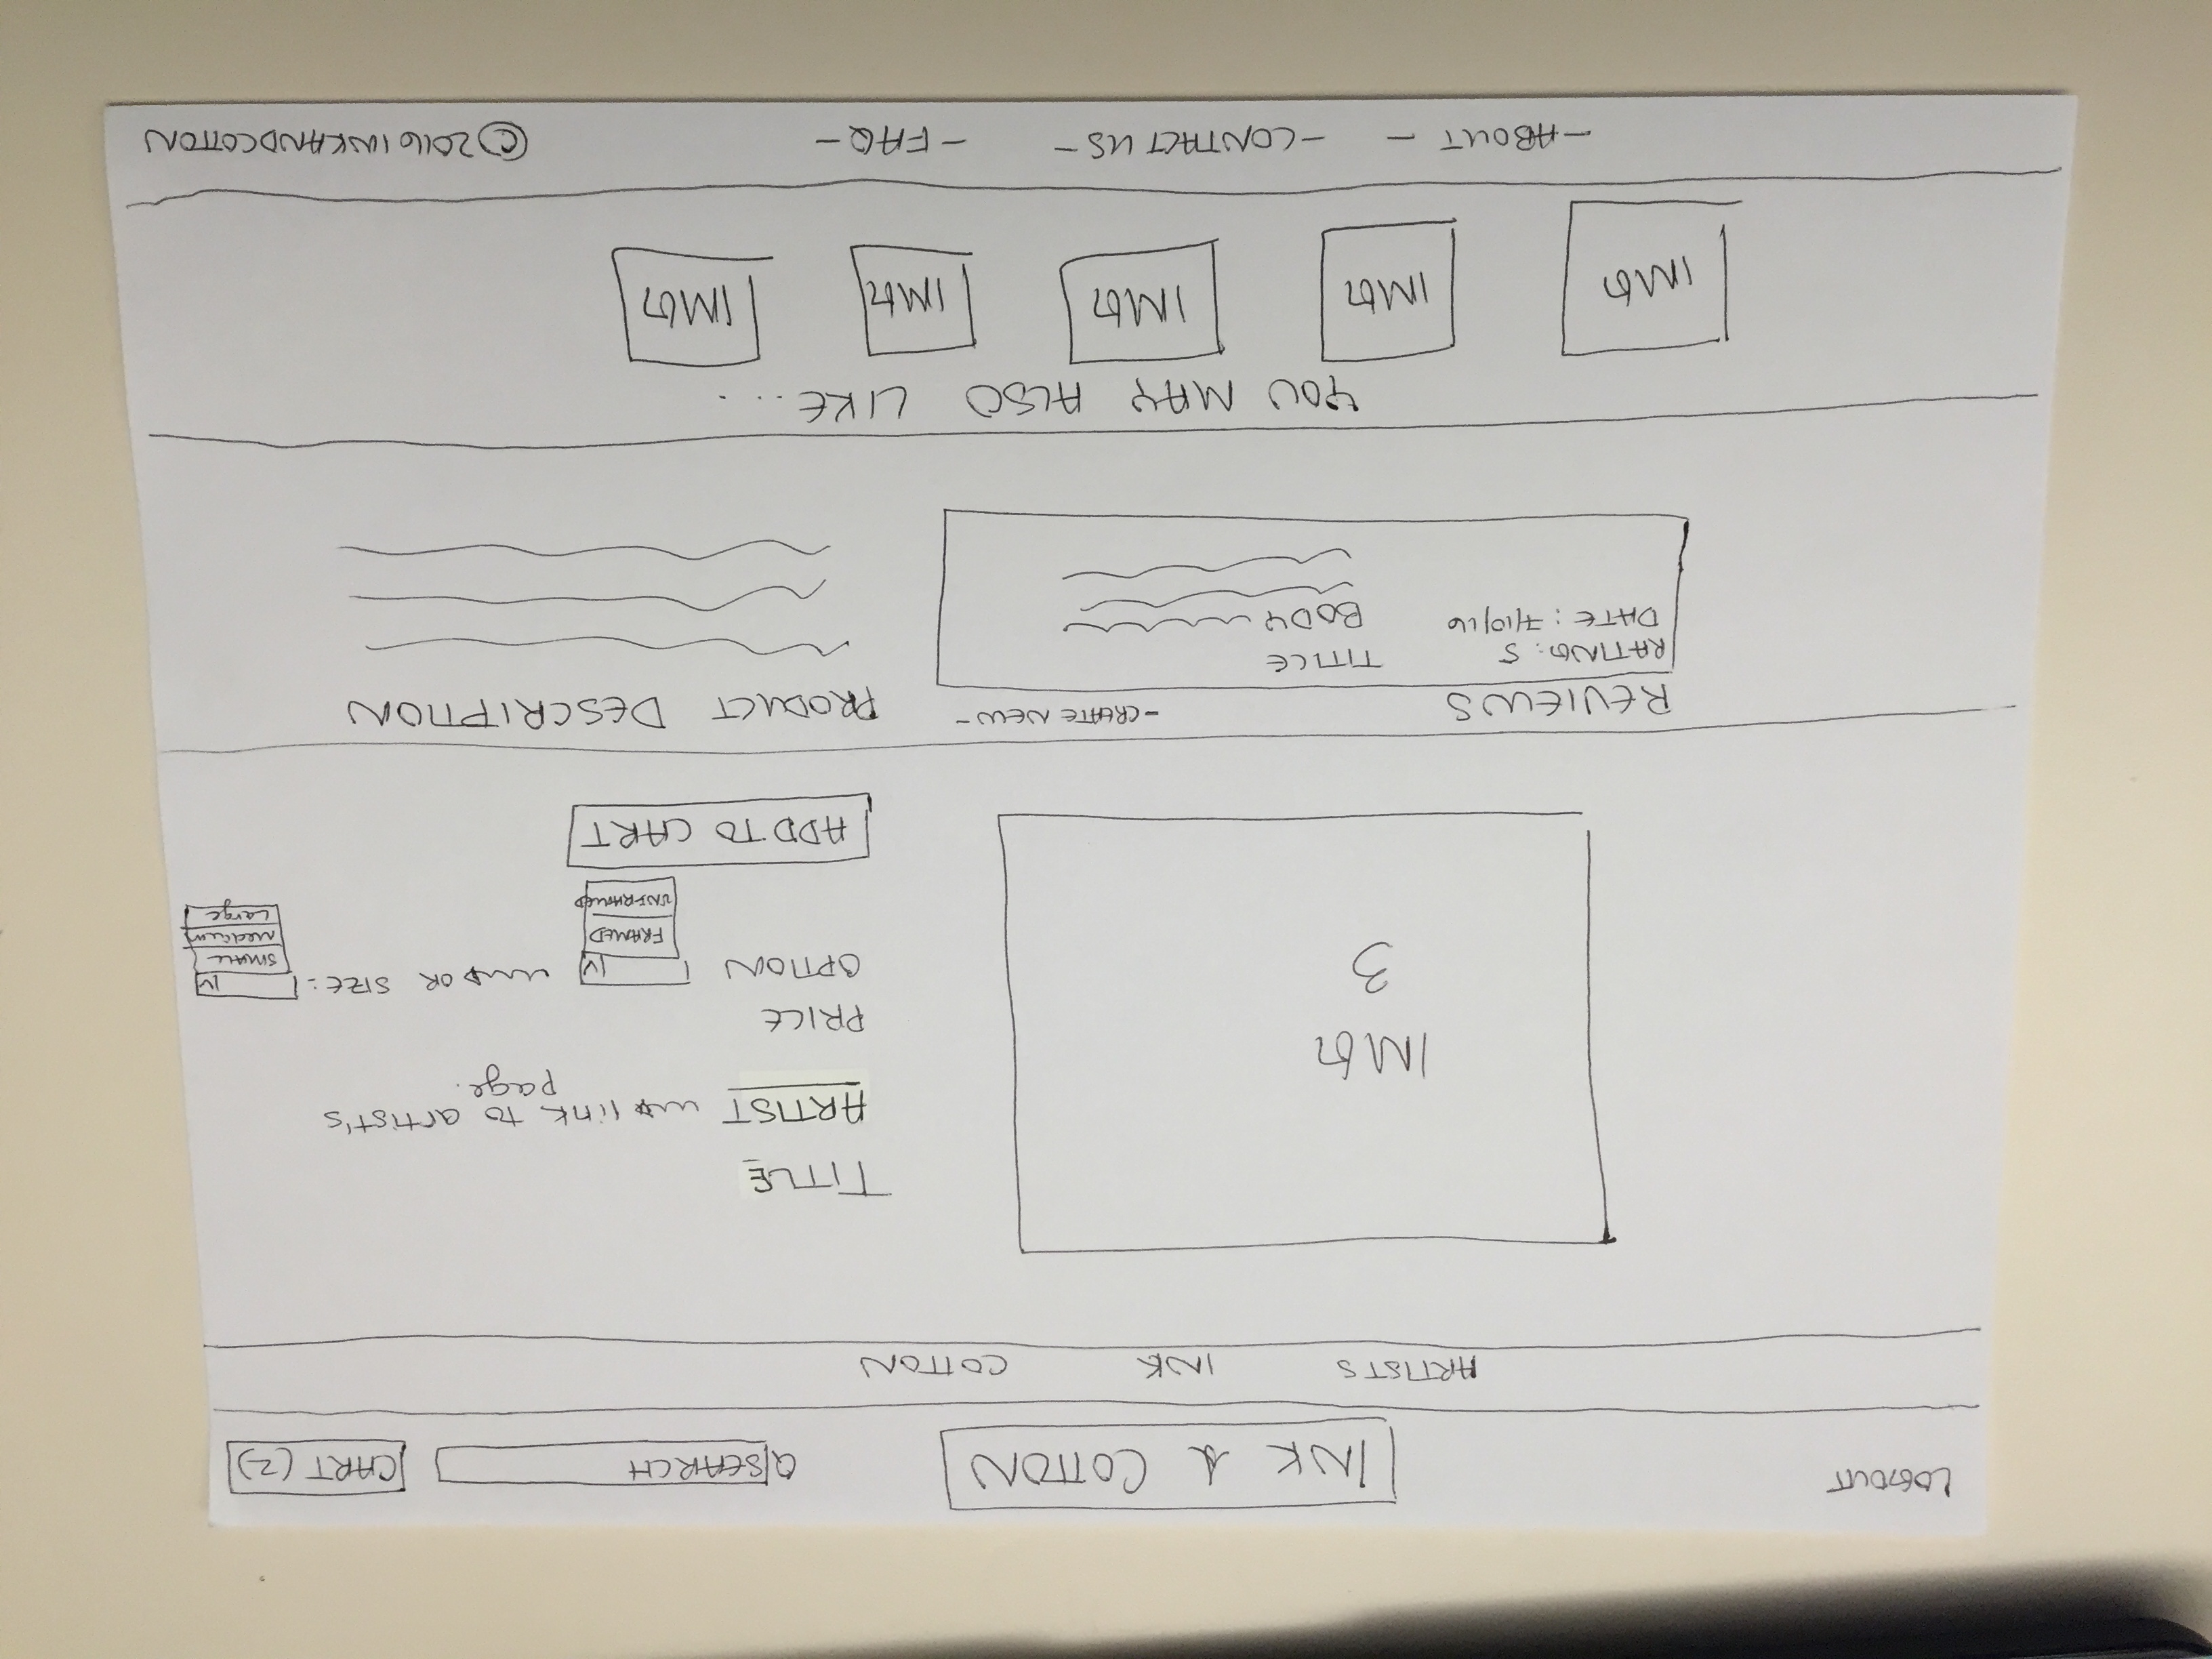 LOGOUT
INK & COTTON
SEARCH
CART (2)
ARTISTS INK COTTON
IMG
3
TITLE
ARTIST link to artist's
page.
PRICE
OPTION
FRAMED
UNFRAMED
OR SIZE:
SMALL
Medium
Large
ADD TO CART
REVIEWS -CREATE NEW-
RATING: 5
DATE: 7/10/16
TITLE
BODY
PRODUCT DESCRIPTION
YOU MAY ALSO LIKE....
IMG IMG IMG IMG IMG
-ABOUT- -CONTACT US- -FAQ- ©2016 INKANDCOTTON